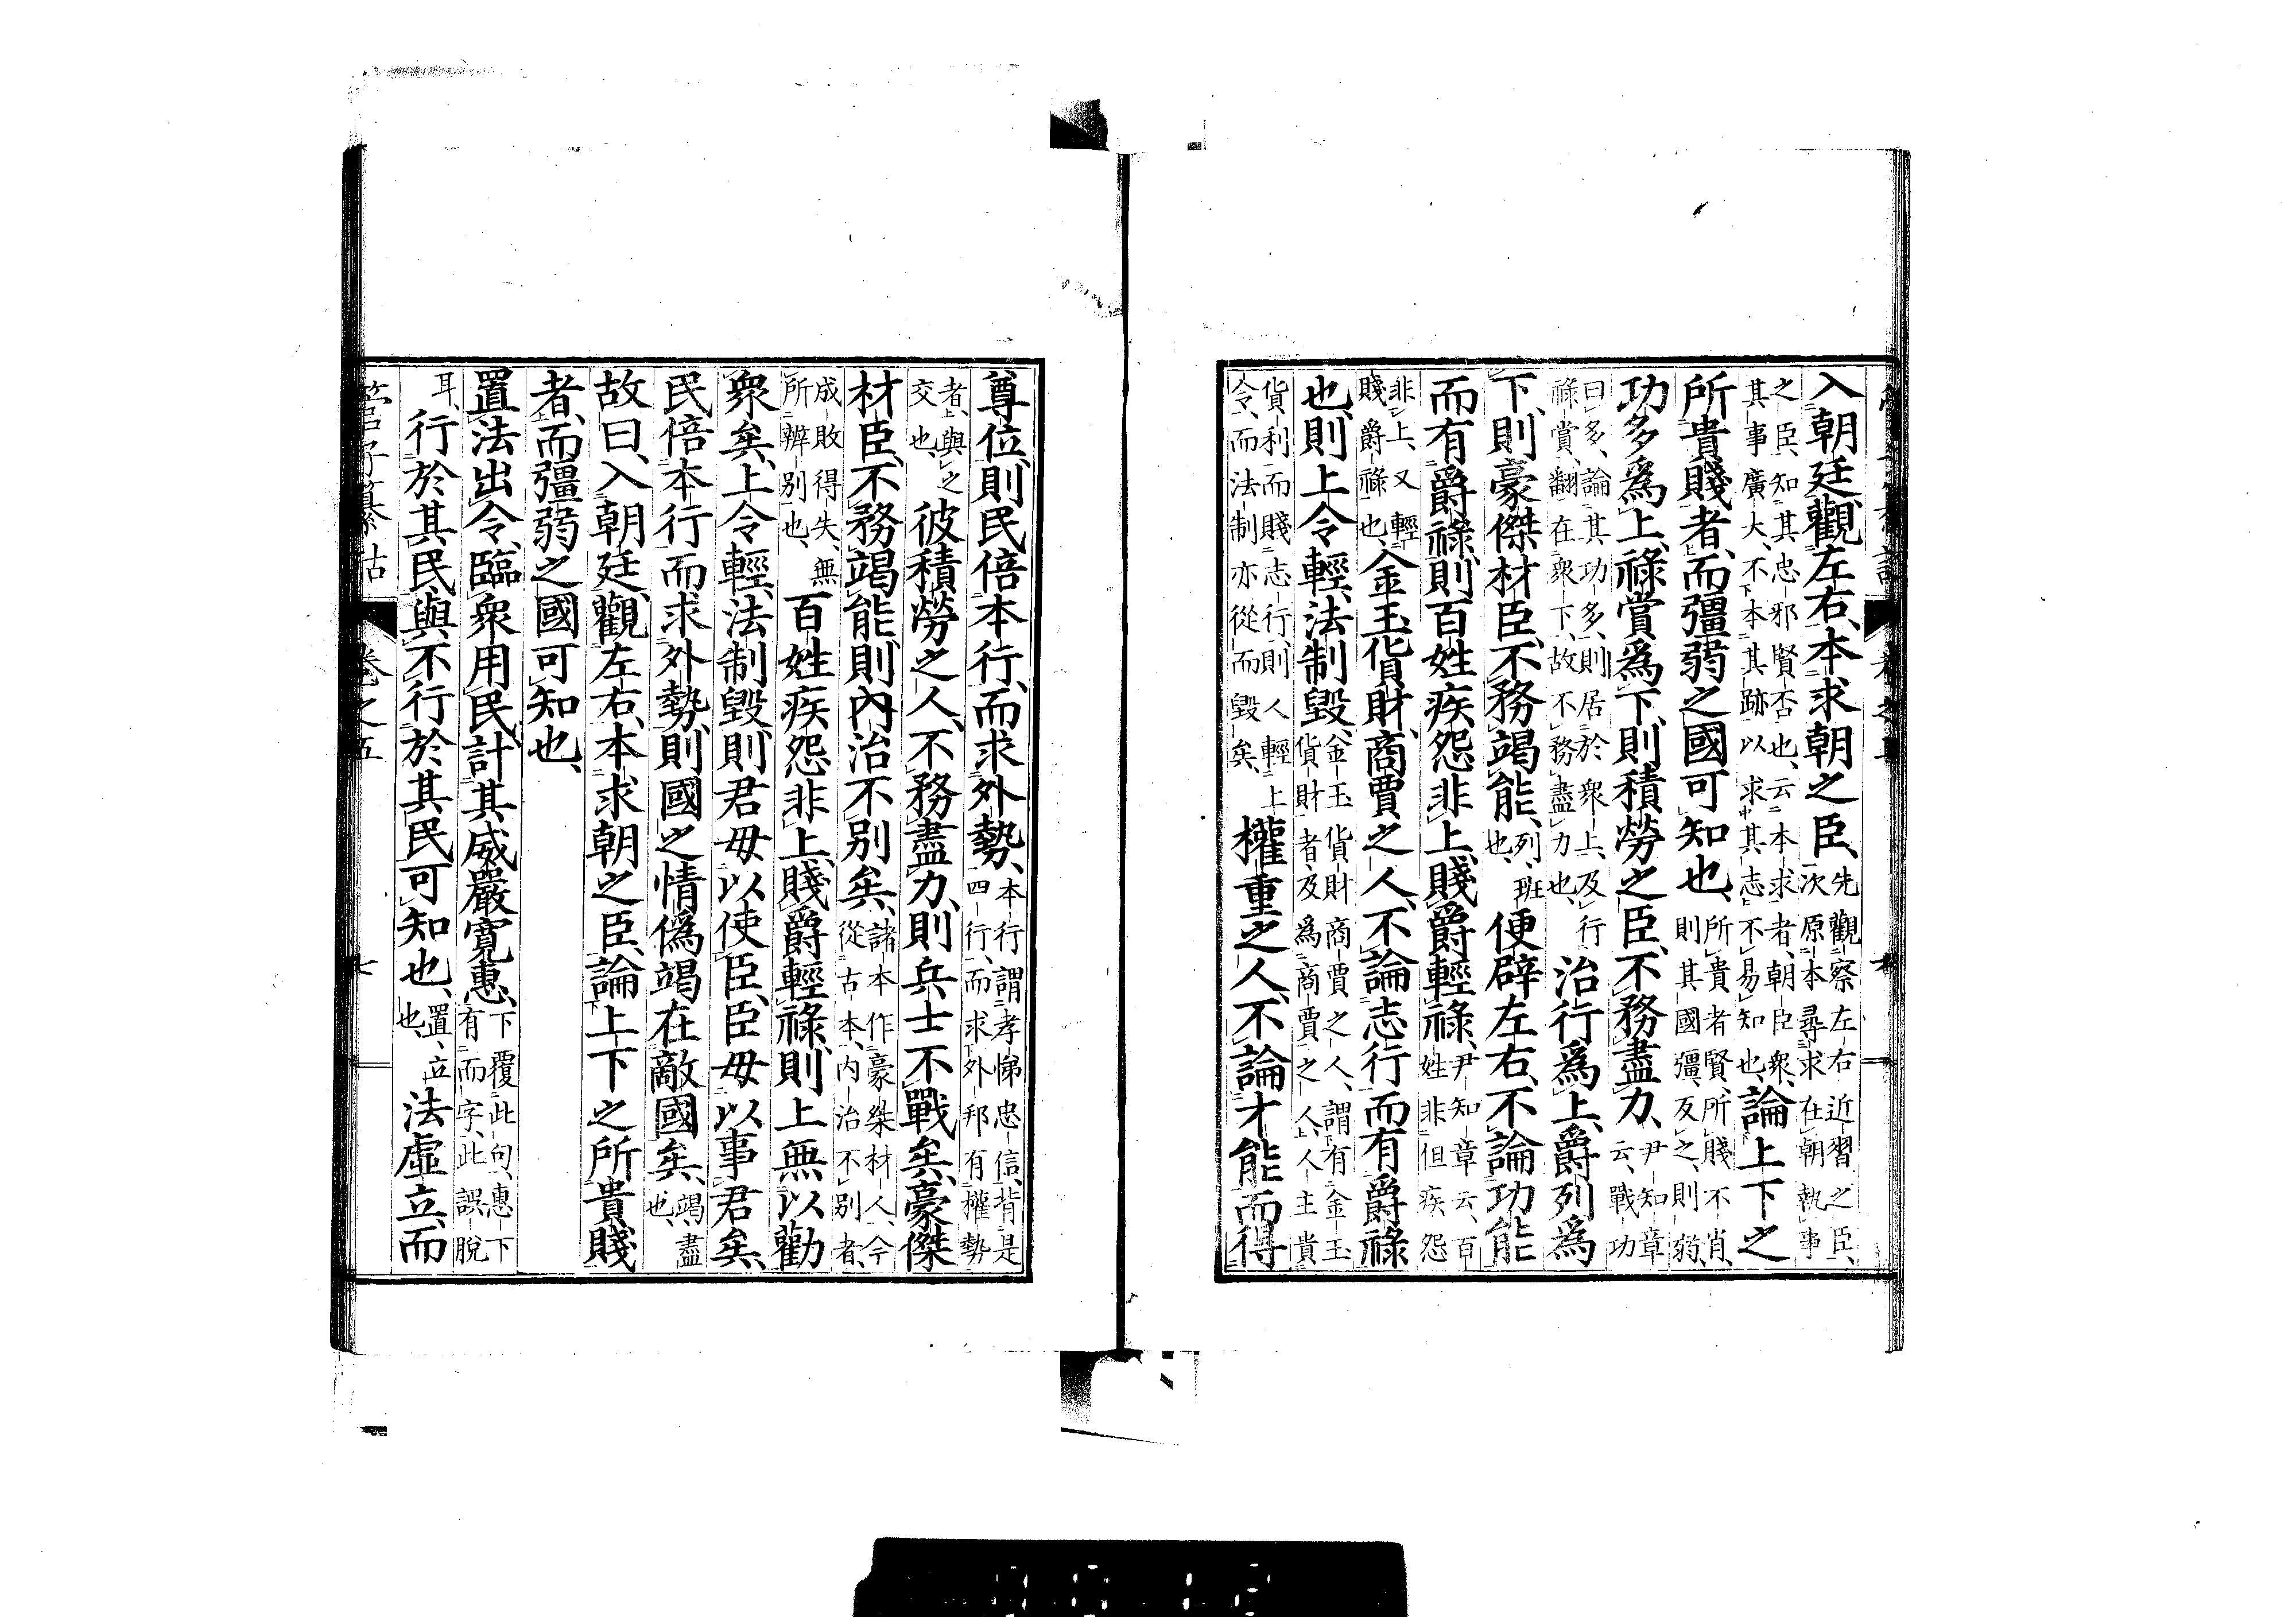 入朝廷、觀左右、本求朝之臣、先觀察左右近習之臣、次原本尋求在朝執事
之臣、知其忠邪賢否也、云本求者、朝臣衆、其事廣大、不本其跡以求其志、不易知也、論上下之
所貴賤者、而彊弱之國可知也、所貴者賢、所賤不肖、則其國彊、反之、則弱、
功多爲上、祿賞爲下、則積勞之臣、不務盡力、尹知章云、戰功
曰多、論其功多、則居於衆上、及行祿賞、翻在衆下、故不務盡力也、治行爲上、爵列爲
下、則豪傑材臣、不務竭能、列、班也、便辟左右、不論功能
而有爵祿、則百姓疾怨非上、賤爵輕祿、尹知章云、百姓非但疾怨
非上、又輕賤爵祿也、金玉貨財、商賈之人、不論志行、而有爵祿
也、則上令輕、法制毀、金玉貨財商賈之人、謂有金玉貨財者、及爲商賈之人、人主貴
貨利而賤志行、則人輕上令、而法制亦從而毀矣、權重之人、不論才能、而得
尊位、則民倍本行、而求外勢、本行謂孝悌忠信、背是四行、而求外邦有權勢
者、與之交也、彼積勞之人、不務盡力、則兵士不戰矣、豪傑
材臣、不務竭能、則內治不别矣、諸本作豪桀材人、今從古本、内治不别者、
成敗得失、無所辨别也、百姓疾怨非上、賤爵輕祿、則上無以勸
衆矣、上令輕、法制毀、則君毋以使臣、臣毋以事君矣、
民倍本行、而求外勢、則國之情僞竭在敵國矣、竭、盡也、
故曰、入朝廷、觀左右、本求朝之臣、論上下之所貴賤
者、而彊弱之國可知也、
置法出令、臨衆用民、計其威嚴寛惠、下覆此句、惠下有而字、此誤脫
耳、行於其民、與不行於其民、可知也、置、立也、法虛立、而
管子纂詁 卷之五 七